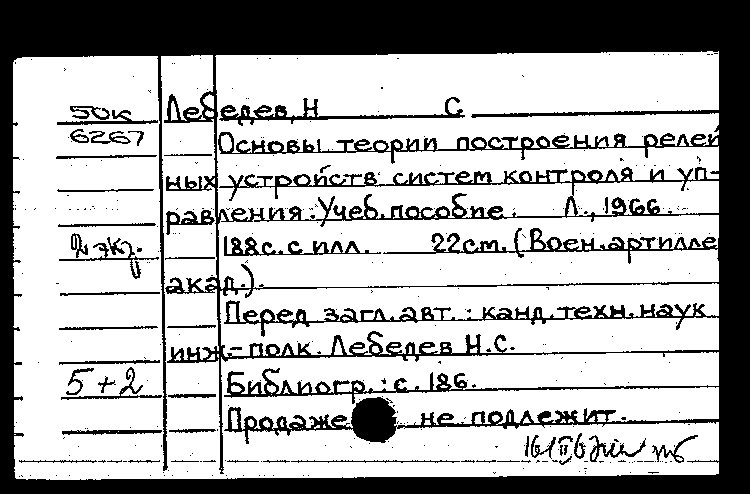 50к Лебедев, Н С.
6267 Основы теории построения релей
ных устройств систем контроля и уп-
равления. Учеб. пособие. Л., 1966.
2 экз. 188с. с илл. 22см. (Воен. артиллер
акад.).
Перед загл. авт.: канд. техн. наук
инж.-полк. Лебедев Н.С.
5+2 Библиогр.: с. 186.
Продаже не подлежит.